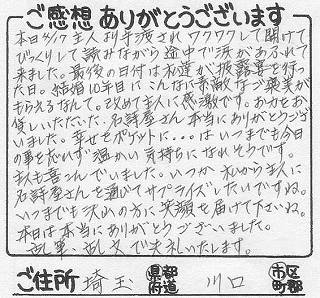 ご感想 ありがとうございます
本日 主人より手渡され ワクワクして開けて
びっくりして 読みながら途中で涙があふれて
来ました。最後の日付は私達が披露宴を行っ
た日。結婚10年目に こんなに素敵なご褒美が
もらえるなんて。改めて主人に感激です。お力をお
貸しいただいた 名詩屋さん 本当にありがとうござ
いました。幸せをポケットに...は いつまでも今日
の事を忘れず 温かい気持ちに なれそうです。
主人も喜こんでいました。いつか 私から主人に
名詩屋さんを通じて サプライズしたいですね。
いつまでも 沢山の方に 笑顔を届けて下さいね。
本日は本当に ありがとうございました。
乱筆、乱文で失礼いたします。
ご住所 埼玉 都道府県 川口 市区町郡